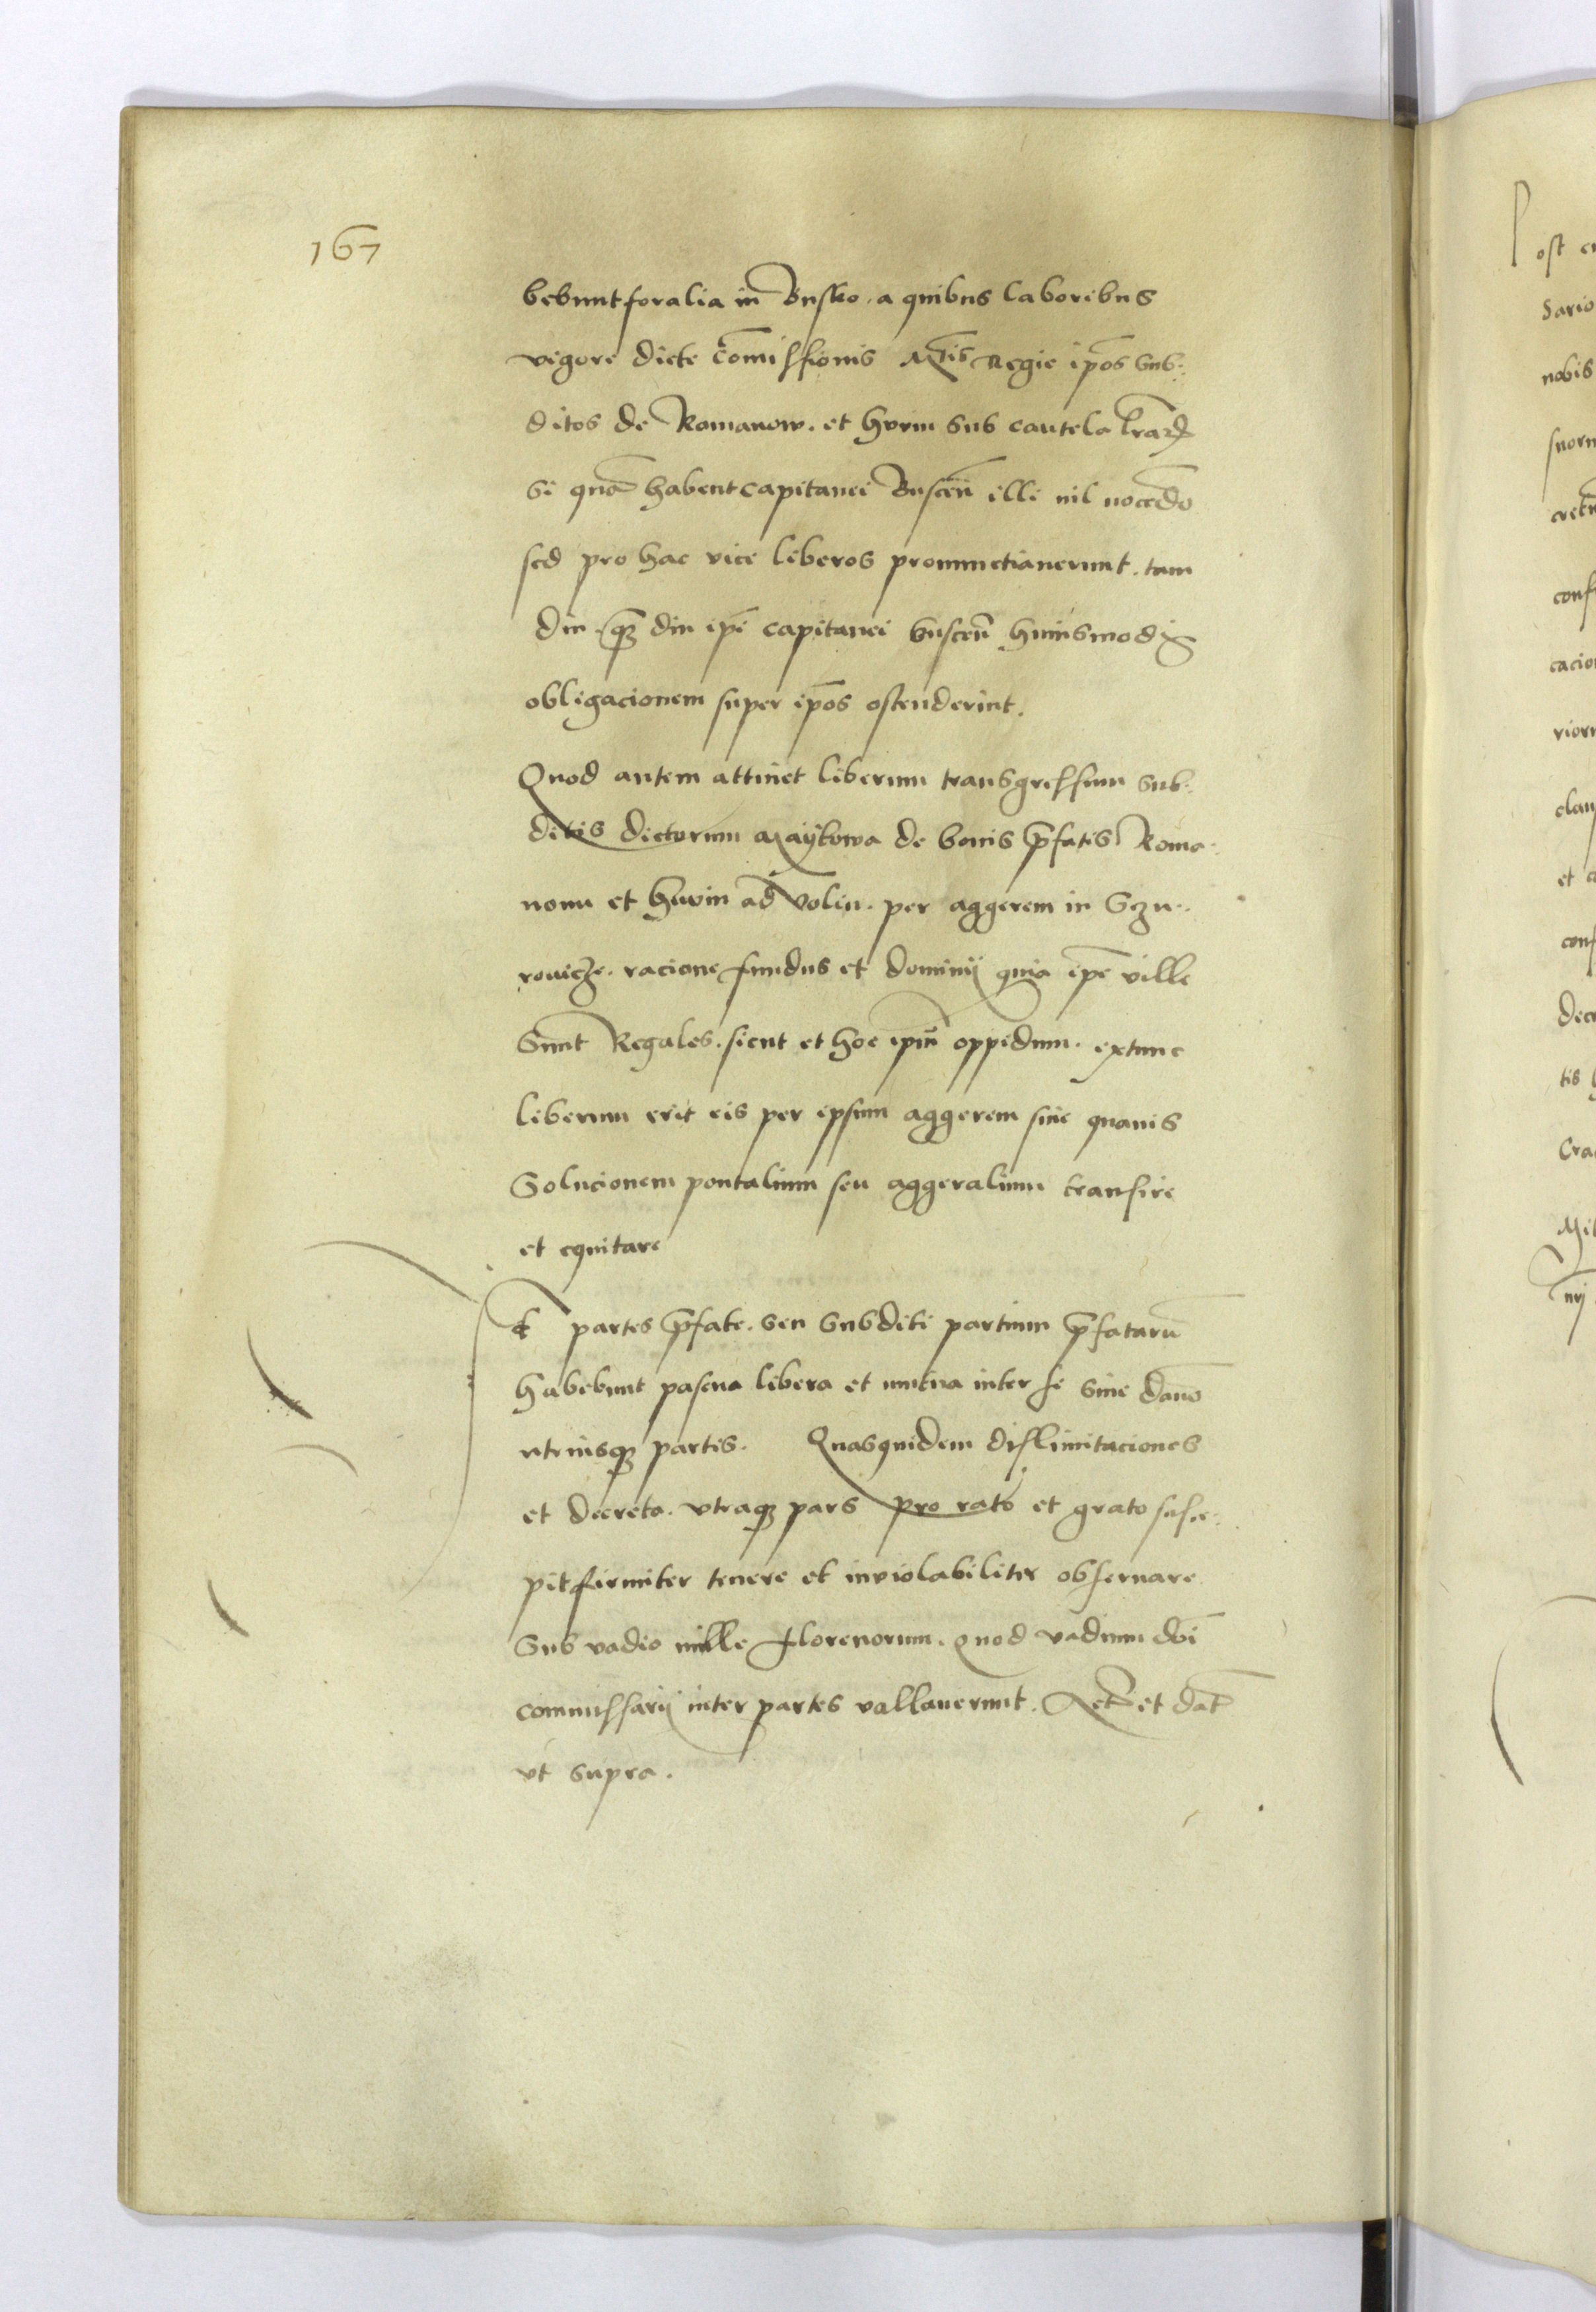 167
bebunt foralia in Busko. a quibus laboribus
vigore dicte com̄issionis M̄tis Regie ip̄os sub-
ditos de Romanow. et hvvin sub cautela lr̄arꝝ
si quā habent capitanei Buscen̄ illi nil nocēdo
sed pro hac vice liberos pronunctiauerunt. tam
diu. qꝫ diu ip̄i capitanei buscen̄ huiusmodi
obligacionem super ip̄os ostenderint.
Quod autem attinet liberum transgressum sub-
ditis dictorum Maykowa de bonis p̄fatis Roma-
nouu et huvin ad Volin. per aggerem in Sczu-
rovicze. racione fundus et dominij quia ip̄e ville
Sunt Regales. sicut et hoc ip̄m̄ oppidum. extunc
liberum erit eis per ipsum aggerem sine quauis
Solucionem pontalium seu aggeralium transire
et equitare
Et partes p̄fate. seu subditi partium p̄fatarū
habebunt pascua libera et mutua inter se sine dam̄o
utriusqꝫ partis. Quasquidem dislimitaciones
et decreta. vtraqꝫ pars pro rato et grato susce-
pit firmiter tenere et inviolabiliter obseruare
Sub vadio mille florenorum. quod vadium dn̄i
commissarij inter partes vallauerunt. Act̄ et dat̄
vt supra.
ost
Sario
nobis
suorn
conf
cacio
clau
et
conf
decr
tis
Cra
nrj